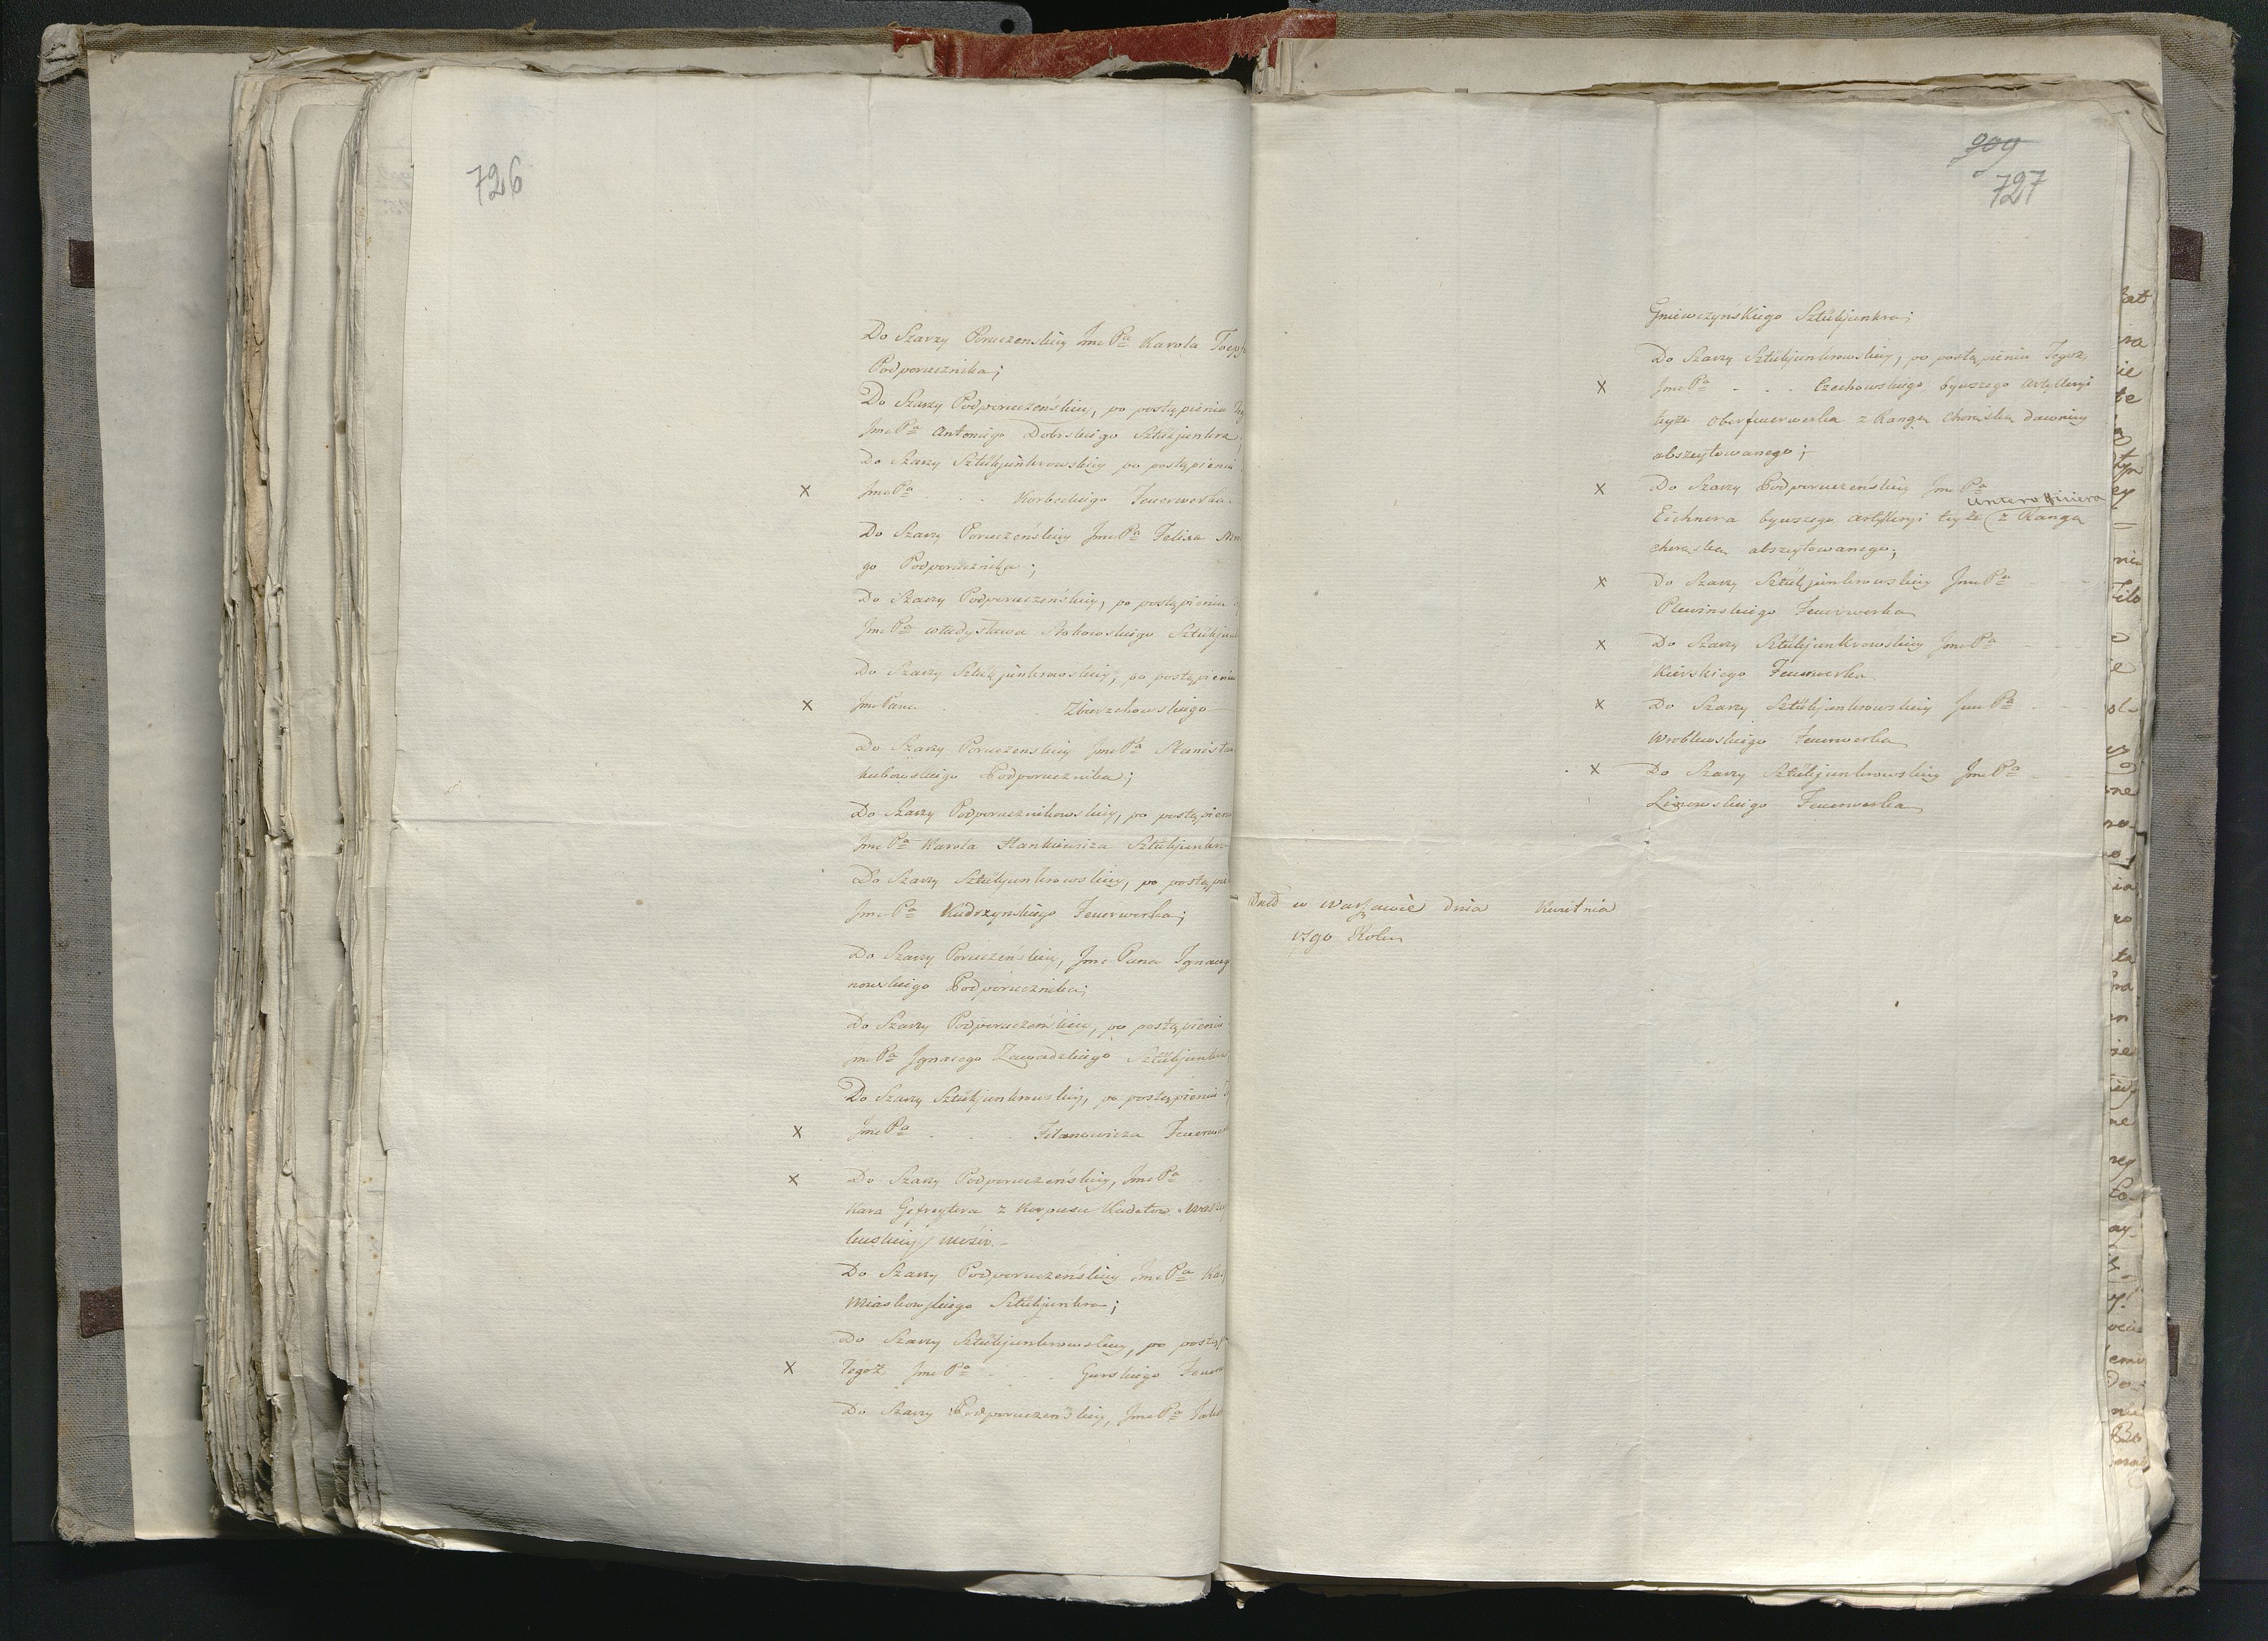 726
Do Szarży Poruczenskiey Jmc Pa Karola Toep
Podporucznika;
Do Szarży Podporuczeńskiey, po postąpieniu Teg
Jmc Pa Antoniego Dobrskiego Sztükjunkra
Do Szarży Sztükjunkrowskiey po postąpieniu
x Jmc Pa . . . Korbeckiego Feuerwerka.
Do Szarży Poruczeńskiey Jmc Pa Felixa
go Podporucznika;
Do Szarży Podporuczeńskiey, po postąpieniu
Jmc Pa Władysława Makowskiego Sztükjun
Do Szarży Sztükjunkrowskiey, po postąpieniu
x Jmc Pana . . Zbierzchowskiego
Do Szarży Poruczenskiey Jmc Pa Stanisła
kubowskiego Podporucznika;
Do Szarży Podporucznikowskiey, po postąpieniu
Jmc Pa Karola Hankiewicza Sztükjunkra
Do Szarży Sztükjunkrowskiey, po postąpie
Jmc Pa Kudrzynskiego Feuerwerka;
Do Szarży Poruczeńskiey, Jmc Pana Ignacego
nowskiego Podporucznika;
Do Szarży Podporuczeńskiey, po postąpieniu
Jmc Pa Ignacego Zawadzkiego Sztükjunkra
Do Szarży Sztükjunkrowskiey, po postąpieniu
x Jmc Pa . . . Felanowicza Feuerwer
x Do Szarży Podporuczeńskiey, Jmc Pa . .
kara Gefreytera z Korpusu Kadetow Warsz
Do Szarży Podporuczeńskiey Jmc Pa Ka
Miaskowskiego Sztükjunkra;
Do Szarży Sztükjunkrowskiey, po postąp
x Tegoż Jmc Pa . . . Gurskiego Feuer
Do Szarży Podporuczeńskiey, Jmc Pa Jako
909
727
Gniewczyńskiego Sztükjunkra;
Do Szarży Sztükjunkrowskiey, po postąpieniu Tegoż,
x Jmc Pa . . . Czechowskiego bywszego Artylleryi
teyże Oberfeuerwerka z Rangą Chorążka dawniey
abszeytowanego;
x Do Szarży Podporuczenskiey Jmc Pa
Unterofficiera
Eichnera bywszego Artylleryi teyże z Rangą
chorążka abszeytowanego;
x Do Szarży Sztükjunkrowskiey Jmc Pa
Plewinskiego Feuerwerka
x Do Szarży Sztükjunkrowskiey Jmc Pa
Kierskiego Feuerwerka
x Do Szarży Sztükjunkrowskiey Jmc Pa
Wroblewskiego Feuerwerka
x Do Szarży Sztükjunkrowskiey Jmc Pa
Lizowskiego Feuerwerka
Datt w Warszawie dnia Kwietnia
1790 Roku